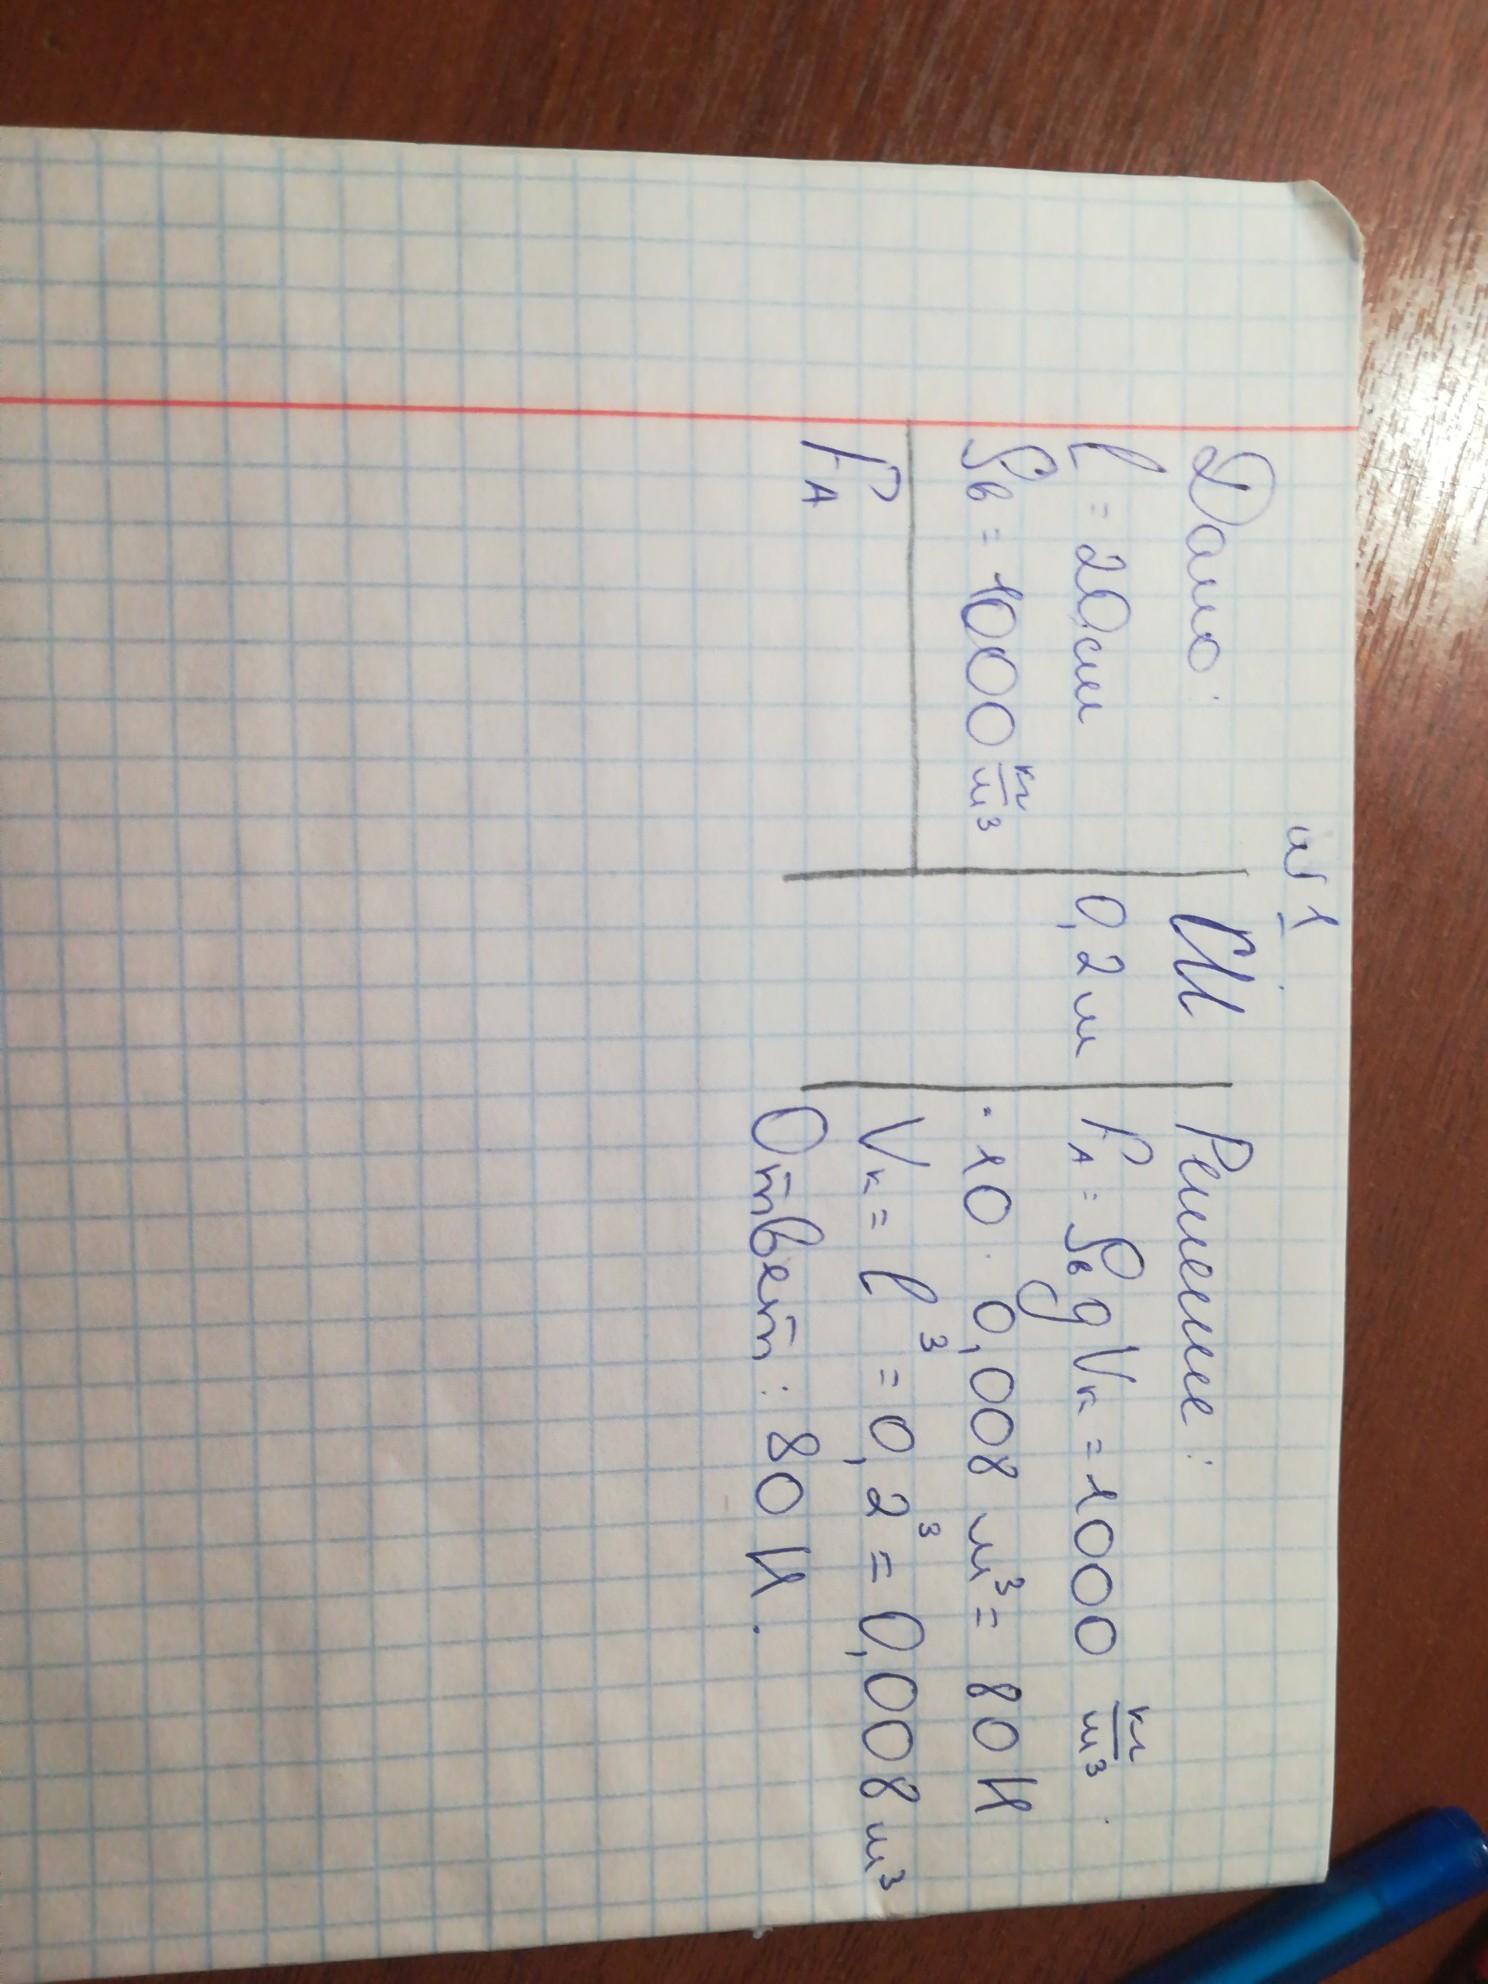 №1
Дано:
l = 20см
ρв = 1000 кг/м³
FА
СИ
0,2 м
Решение:
FА = ρв g Vк = 1000 кг/м³ ·
· 10 · 0,008 м³ = 80 Н
Vк = l³ = 0,2³ = 0,008 м³
Ответ: 80 Н.